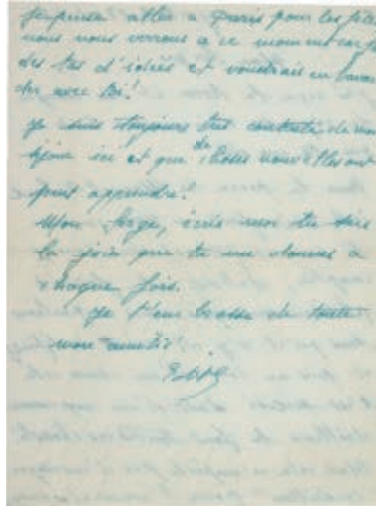 je pense aller a Paris pour les fêtes
nous nous verrons a ce moment car j'ai
des tas d'idées et voudrais en bavar
der avec toi!
Je suis toujours très contente de mon
séjour ici et que de choses nous allons
pouvoir apprendre!
Mon Jorge, écris moi tu sais
la joie que tu me donnes a
chaque fois.
Je t'embrasse de toute
mon amitié